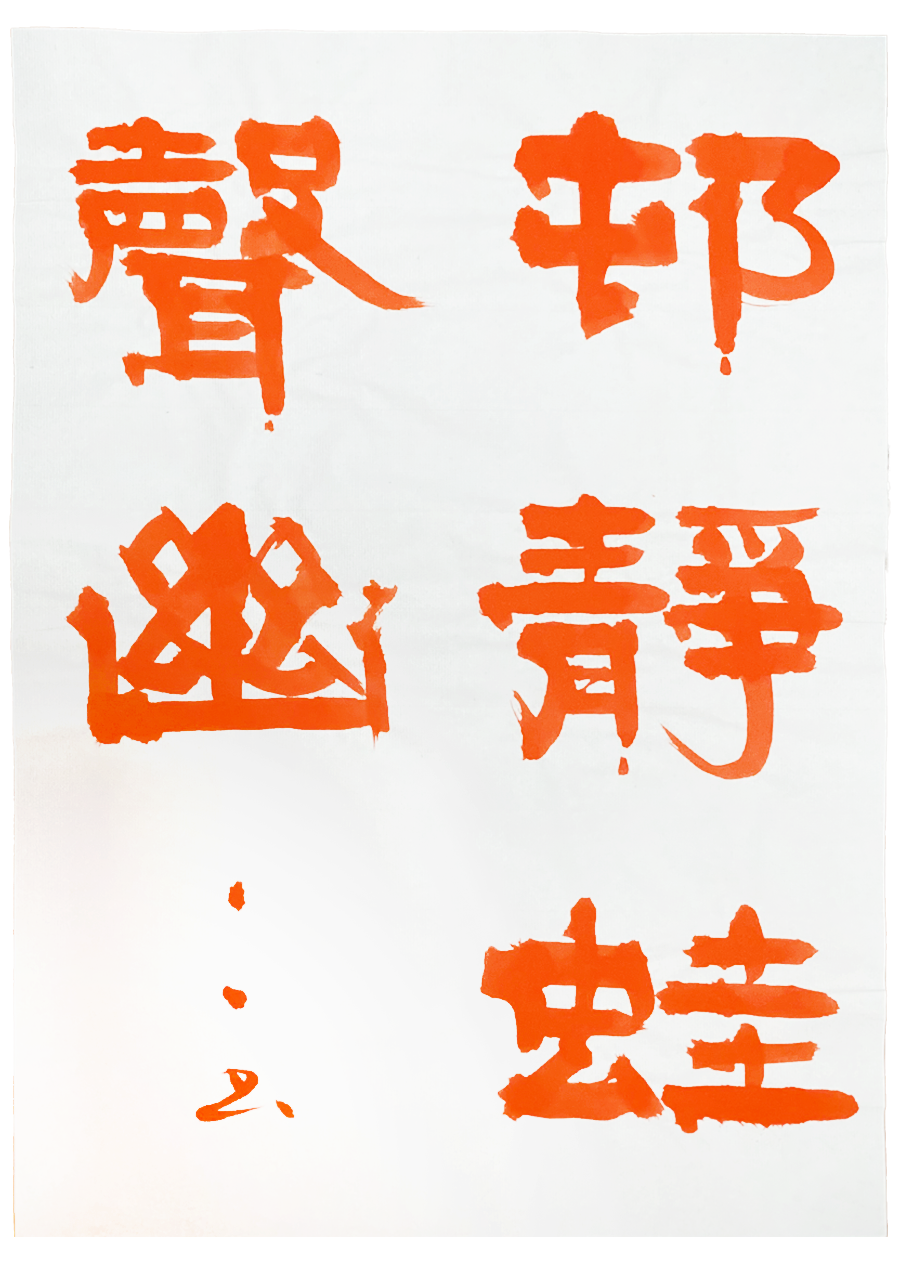 邨靜蛙
聲幽